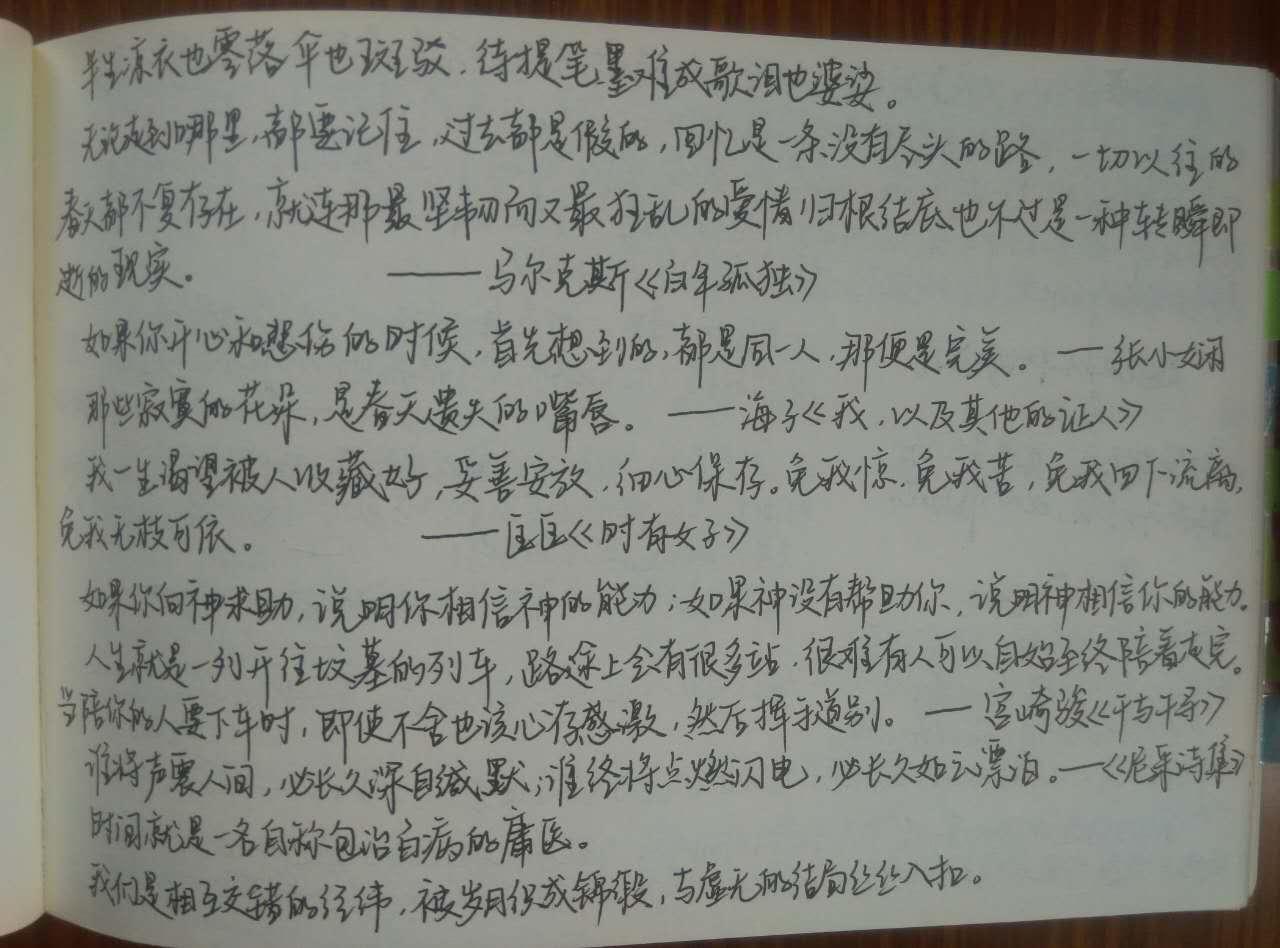 半生凉衣也零落伞也斑驳，待提笔墨难成歌泪也婆娑。
无论走到哪里，都要记住，过去都是假的，回忆是一条没有尽头的路，一切以往的
春天都不复存在，就连那最坚韧而又最狂乱的爱情归根结底也不过是一种转瞬即
逝的现实。 ——马尔克斯《百年孤独》
如果你开心和悲伤的时候，首先想到的，都是同一人，那便是完美。 —张小娴
那些寂寞的花朵，是春天遗失的嘴唇。 ——海子《我，以及其他的证人》
我一生渴望被人收藏好，妥善安放，细心保存。免我惊，免我苦，免我四下流离，
免我无枝可依。 ——匡匡《时有女子》
如果你向神求助，说明你相信神的能力；如果神没有帮助你，说明神相信你的能力。
人生就是一列开往坟墓的列车，路途上会有很多站，很难有人可以自始至终陪着走完。
当陪你的人要下车时，即使不舍也该心存感激，然后挥手道别。 —宫崎骏《千与千寻》
谁将声震人间，必长久深自缄默；谁终将点燃闪电，必长久如云漂泊。—《尼采诗集》
时间就是一名自称包治百病的庸医。
我们是相互交错的经纬，被岁月织成锦缎，与虚无的结局丝丝入扣。